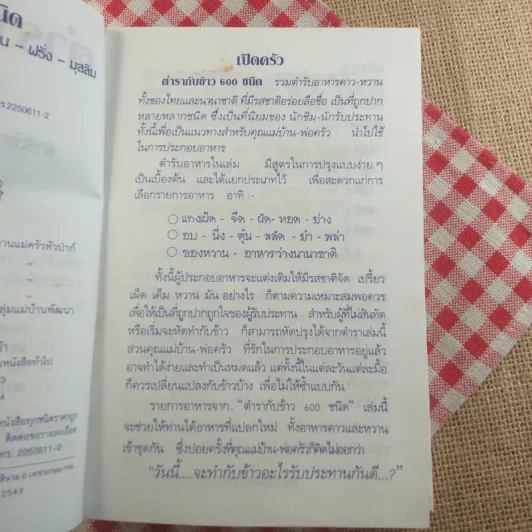 นิด
น – ฝรั่ง – มุสลิม
ร.2250611-2
านแม่ครัวหัวป่าก์
ลุ่มแม่บ้านพัฒนา
หนังสือทั่วไป
หนังสือทุกชนิดราคาถูก
ติดต่อขอรายละเอียด
โทร. 2250611-2
2543
เปิดครัว
ตำรากับข้าว 600 ชนิด รวมตำรับอาหารคาว-หวาน
ทั้งของไทยและนานาชาติ ที่มีรสชาติอร่อยลือชื่อ เป็นที่ถูกปาก
หลายหลากชนิด ซึ่งเป็นที่นิยมของ นักชิม-นักรับประทาน
ทั้งนี้เพื่อเป็นแนวทางสำหรับคุณแม่บ้าน-พ่อครัว นำไปใช้
ในการประกอบอาหาร
ตำรับอาหารในเล่ม มีสูตรในการปรุงแบบง่าย ๆ
เป็นเบื้องต้น และได้แยกประเภทไว้ เพื่อสะดวกแก่การ
เลือกรายการอาหาร อาทิ :-
○ แกงเผ็ด - จืด - ผัด- ทอด - ย่าง
○ อบ - นึ่ง - ตุ๋น - สลัด - ยำ - พล่า
○ ของหวาน - อาหารว่างนานาชาติ
ทั้งนี้ผู้ประกอบอาหารจะแต่งเติมให้มีรสชาติจัด เปรี้ยว
เผ็ด เค็ม หวาน มัน อย่างไร ก็ตามความเหมาะสมพอควร
เพื่อให้เป็นที่ถูกปากถูกใจของผู้รับประทาน สำหรับผู้ที่ไม่สันทัด
หรือเริ่มจะหัดทำกับข้าว ก็สามารถหัดปรุงได้จากตำราเล่มนี้
ส่วนคุณแม่บ้าน-พ่อครัว ที่รักในการประกอบอาหารอยู่แล้ว
อาจทำได้ง่ายและทำเป็นหมดแล้ว แต่ทั้งนี้ในแต่ละวันแต่ละมื้อ
ก็ควรเปลี่ยนแปลงกับข้าวบ้าง เพื่อไม่ให้ซ้ำแบบกัน
รายการอาหารจาก "ตำรากับข้าว 600 ชนิด" เล่มนี้
จะช่วยให้ท่านได้อาหารที่แปลกใหม่ ทั้งอาหารคาวและหวาน
เข้าชุดกัน ซึ่งบ่อยครั้งที่คุณแม่บ้าน-พ่อครัวก็คิดไม่ออกว่า
"วันนี้....จะทำกับข้าวอะไรรับประทานกันดี...?"